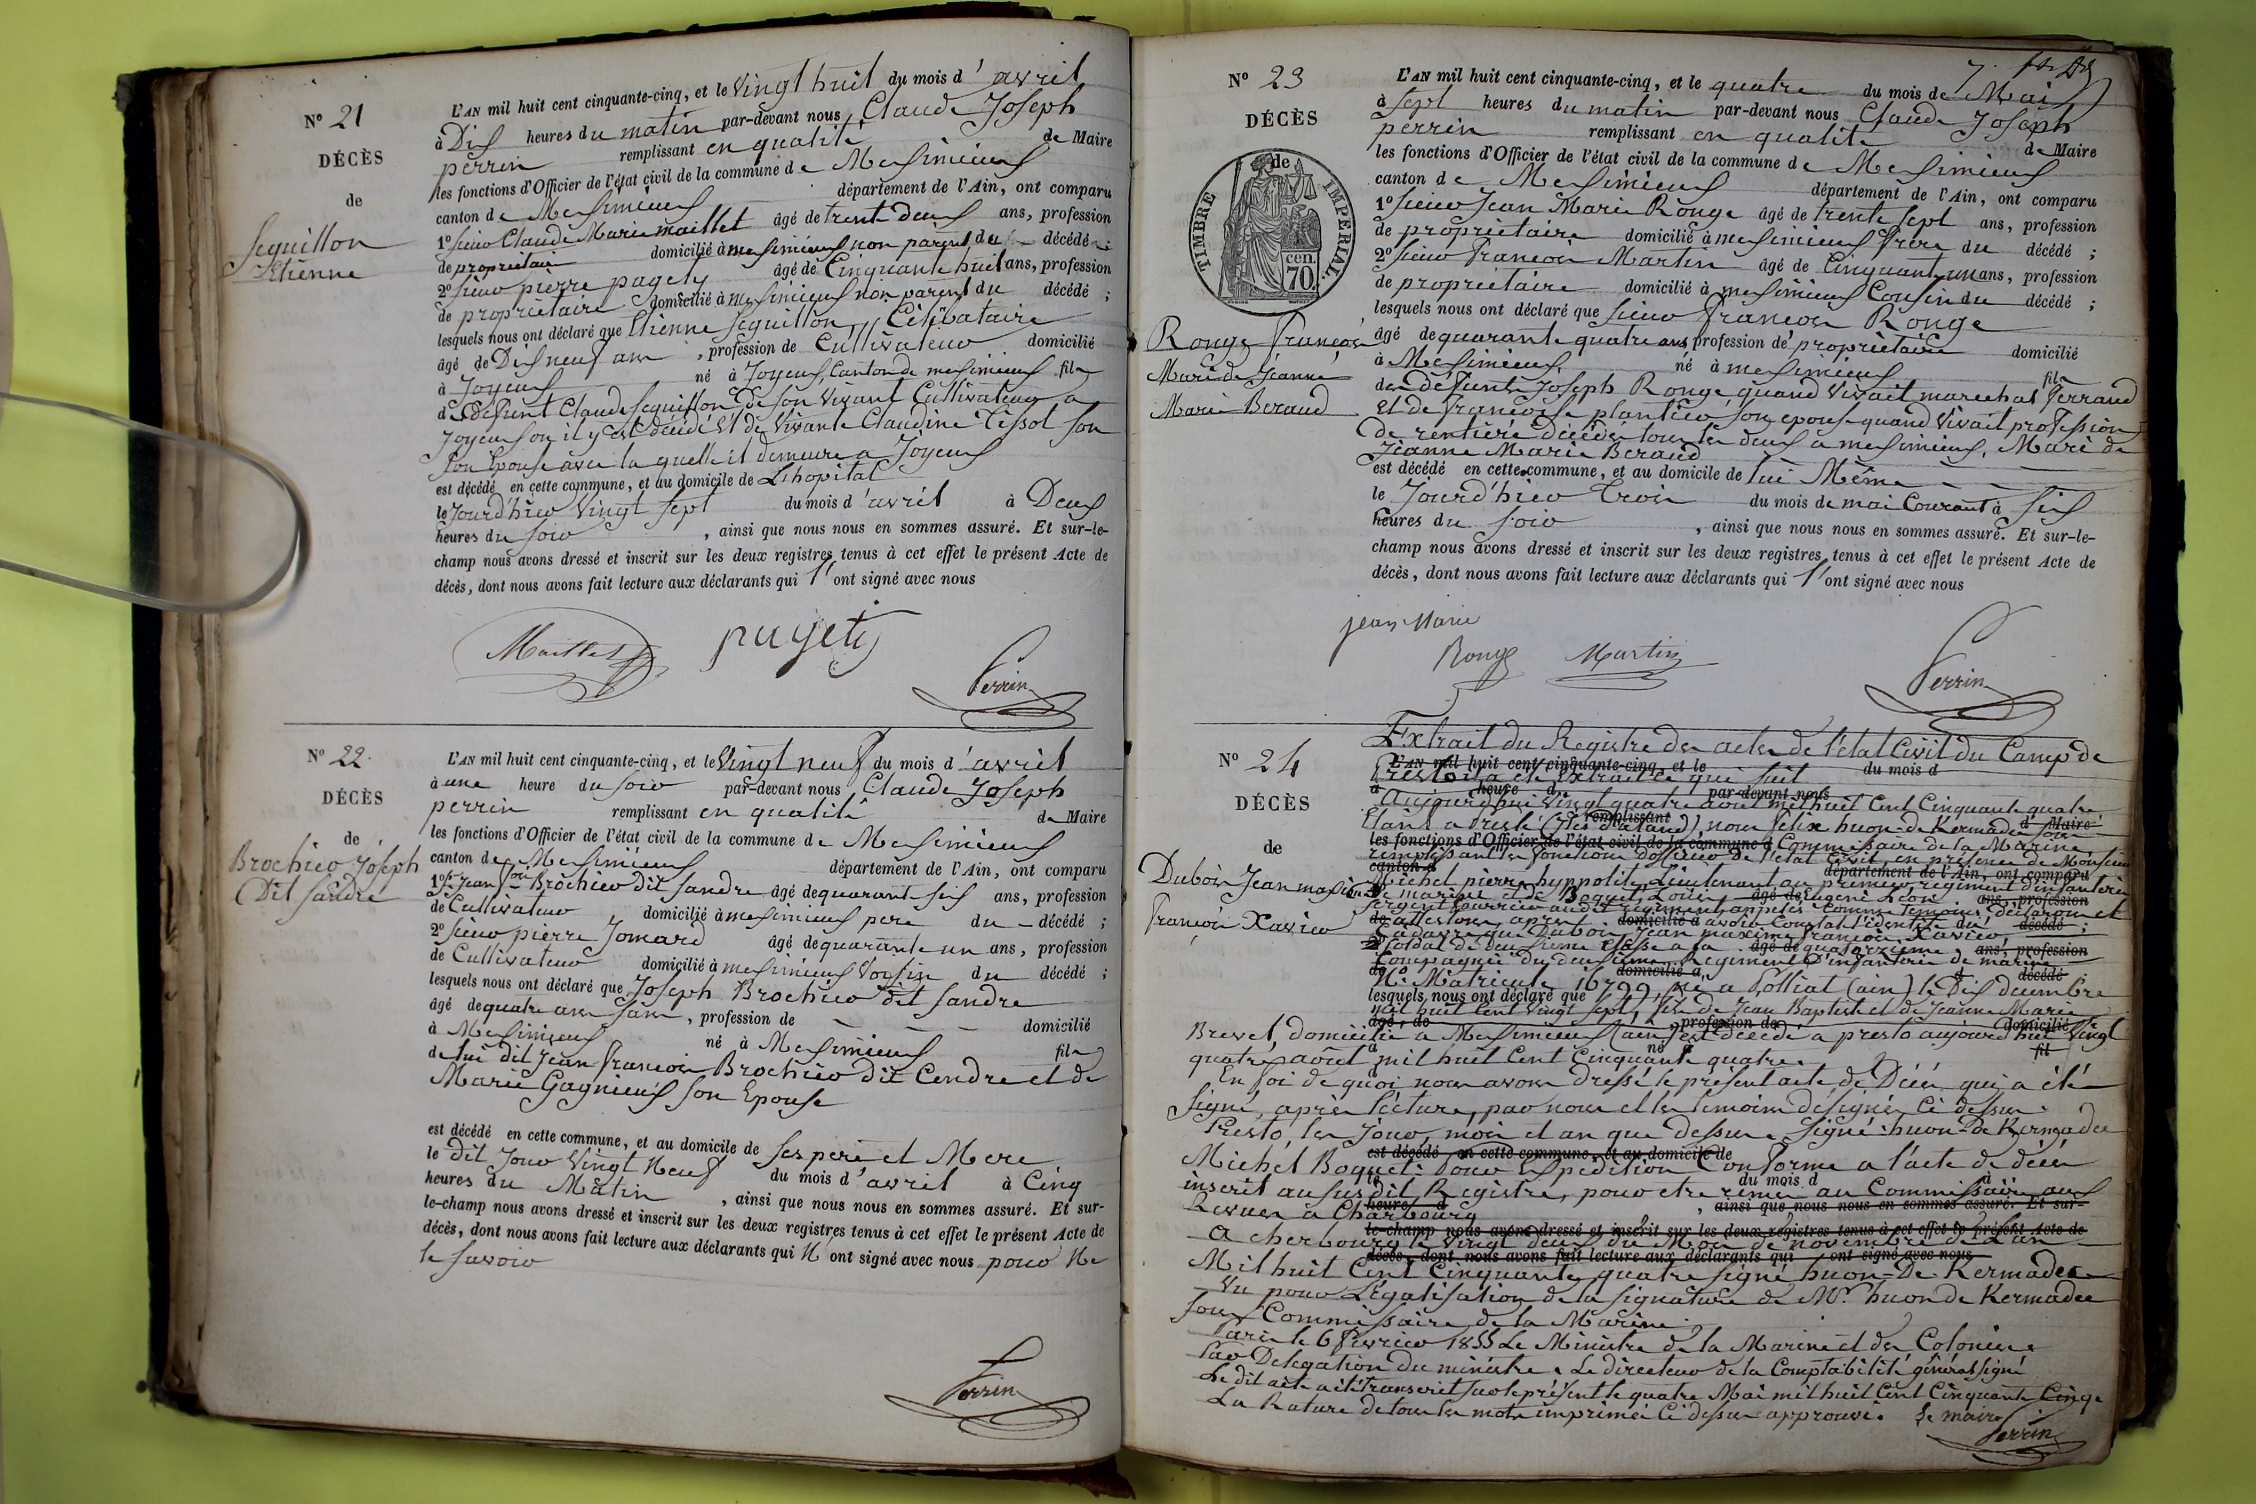 N° 21
DÉCÈS
de
Seguillon
Etienne
L'AN mil huit cent cinquante-cinq, et le Vingt huit du mois d'avril
à Dix heures du matin par-devant nous Claude Joseph
perrin remplissant en qualité de Maire
les fonctions d'Officier de l'état civil de la commune de Meximieux
canton de Meximieux département de l'Ain, ont comparu
1° sieur Claude Marie maillet âgé de trente deux ans, profession
de proprietaire domicilié à meximieux non parent du décédé ;
2° sieur pierre pugety âgé de Cinquante huit ans, profession
de proprietaire domicilié à meximieux non parent du décédé ;
lesquels nous ont déclaré que Etienne Seguillon, Célibataire
âgé de Dix neuf ans, profession de Cultivateur domicilié
à Joyeux né à Joyeux, Canton de meximieux fils
de Defunt Claude Seguillon de son vivant Cultivateur a
Joyeux ou il y est décédé et de vivante Claudine Tissot son
son Epouse avec la quelle il demeure a Joyeux
est décédé en cette commune, et au domicile de L'hopital
le Jourd'hier Vingt sept du mois d'avril à Deux
heures du soir, ainsi que nous nous en sommes assuré. Et sur-le-
champ nous avons dressé et inscrit sur les deux registres tenus à cet effet le présent Acte de
décès, dont nous avons fait lecture aux déclarants qui l'ont signé avec nous
Maillet pugety
Perrin
N° 22
DÉCÈS
de
Brochier Joseph
Dit Sandre
L'AN mil huit cent cinquante-cinq, et le Vingt neuf du mois d'avril
à une heure du soir par-devant nous Claude Joseph
perrin remplissant en qualité de Maire
les fonctions d'Officier de l'état civil de la commune de Meximieux
canton de Meximieux département de l'Ain, ont comparu
1° sr Jean fois Brochier dit Sandre âgé de quarante six ans, profession
de Cultivateur domicilié à meximieux pere du décédé ;
2° sieur pierre Jomard âgé de quarante un ans, profession
de Cultivateur domicilié à meximieux Voisin du décédé ;
lesquels nous ont déclaré que Joseph Brochier dit Sandre
âgé de quatre ans, profession de domicilié
à Meximieux né à Meximieux fils
de lui dit Jean francois Brochier dit Cendre et de
Marie Gagnieux son Epouse
est décédé en cette commune, et au domicile de ses pere et Mere
le dit Jour Vingt Neuf du mois d'avril à Cinq
heures du Matin, ainsi que nous nous en sommes assuré. Et sur-
le-champ nous avons dressé et inscrit sur les deux registres tenus à cet effet le présent Acte de
décès, dont nous avons fait lecture aux déclarants qui N'ont signé avec nous pour Ne
le savoir
Perrin
N° 23
DÉCÈS
de
TIMBRE IMPERIAL.
70 cen.
Rouge François
Mari de Jeanne
Marie Beraud
L'AN mil huit cent cinquante-cinq, et le quatre du mois de Mai
à sept heures du matin par-devant nous Claude Joseph
perrin remplissant en qualité de Maire
les fonctions d'Officier de l'état civil de la commune de Meximieux
canton de Meximieux département de l'Ain, ont comparu
1° sieur Jean Marie Rouge âgé de trente sept ans, profession
de proprietaire domicilié à meximieux frere du décédé ;
2° sieur francois Martin âgé de Cinquante un ans, profession
de proprietaire domicilié à meximieux Cousin du décédé ;
lesquels nous ont déclaré que sieur francois Rouge
âgé de quarante quatre ans profession de propriétaire domicilié
à Meximieux, né à meximieux fils
des defunts Joseph Rouge quand vivait marechal ferrand
et de francoise plantier son epouse quand vivait profession
de rentiére Décédés tous les deux à meximieux, Mari de
Jeanne Marie Beraud
est décédé en cette commune, et au domicile de lui Même
le Jourd'hier trois du mois de mai Courant à six
heures du soir, ainsi que nous nous en sommes assuré. Et sur-le-
champ nous avons dressé et inscrit sur les deux registres tenus à cet effet le présent Acte de
décès, dont nous avons fait lecture aux déclarants qui l'ont signé avec nous
jean Marie
Rouge Martin
Perrin
N° 24
DÉCÈS
de
Dubois Jean maxime
François Xavier
Extrait du Registre des actes de l'état Civil du Camp de
L'AN mil huit cent cinquante-cinq, et le du mois d
Presto il a été Extrait ce qui suit
à heure d par-devant nous
Aujourd'hui vingt quatre aout mil huit Cent Cinquante quatre
remplissant d Maire
Etant a Presto (iles d'aland) nous felix huon de Kermadec sous
les fonctions d'Officier de l'état civil de la commune d
Commissaire de la Marine
remplissant les fonctions d'officier de l'état Civil, en présence de Monsieur
canton d département de l'Ain, ont comparu
Michel pierre hyppolite, Lieutenant au premier regiment d'infanterie
de marine et de Boquet, Louis Eugené Léon
âgé de ans, profession
sergent fourrier audit regiment appelés comme temoins, déclarons et
de domicilié à décédé ;
attestons, apres avoir Constaté l'identité du
Cadavre que Dubois, Jean maxime françois Xavier
2° âgé de ans, profession
soldat de deuxieme classe a la quatorzieme
Compagnie du deuxieme Regiment d'infanterie de marine
de domicilié à d décédé
N°. Matricule 16799, né a Polliat (ain) le Dix decembre
lesquels nous ont déclaré que
mil huit Cent Vingt sept, fils de Jean Baptiste et de Jeanne Marie
âgé de profession de domicilié
Brevet, domicilié à Meximieux (ain) est décédé a presto aujourd'hui Vingt
à né à fil
quatre aout mil huit Cent Cinquante quatre.
En foi de quoi nous avons dressé le présent acte de Décés qui a été
Signé, après lécture, par nous et les temoins désignés Ci dessus.
Presto, les Jour, mois et an que dessus. Signé: huon de Kermadec
est décédé en cette commune, et au domicile de
Michel Boquet: Pour Expédition Conforme a l'acte de décés
le du mois d à
inscrit au susdit Registre, pour etre remis au Commissaire aux
heure d , ainsi que nous nous en sommes assuré. Et sur-
Revues à Charbourg
le-champ nous avons dressé et inscrit sur les deux registres tenus à cet effet le présent Acte de
A Cherbourg le Vingt deux du Mois de Novembre de l'an
décès, dont nous avons fait lecture aux déclarants qui ont signé avec nous
Mil huit Cent Cinquante quatre signé huon De Kermadec
Vu pour Légalisation de la signature de Mr. huon de Kermadec
sous Commissaire de la Marine.
Paris le 6 fevrier 1855 Le Ministre de la Marine et des Colonies.
Par Délegation du ministre. Le directeur de la Comptabilité général signé
Le dit acte a été transcrit sur le présent le quatre Mai mil huit Cent Cinquante Cinq.
La Rature de tous les mots imprimés Ci dessus approuvé. Le maire
Perrin